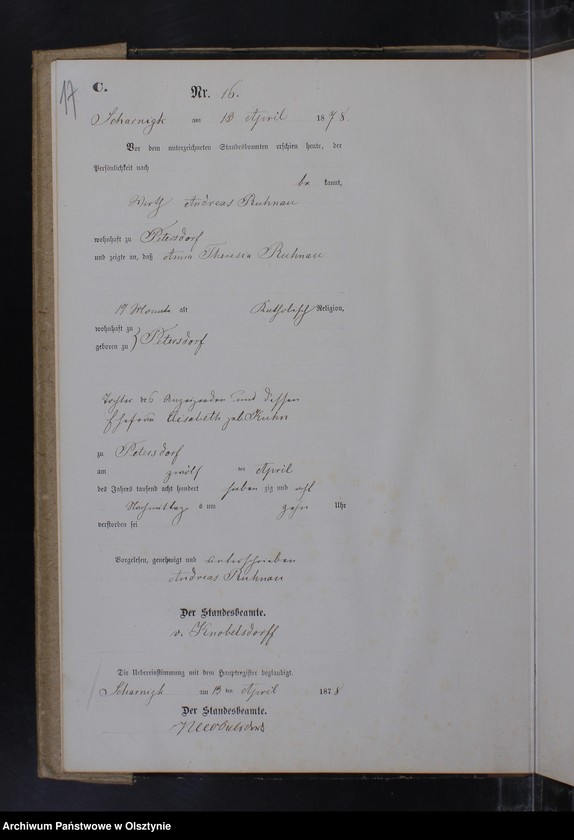 17
C.
Nr. 16.
Scharnigk am 13 April 1878.
Vor dem unterzeichneten Standesbeamten erschien heute, der
Persönlichkeit nach
bekannt,
Wirth Andreas Ruhnau
wohnhaft zu Petersdorf
und zeigte an, daß Anna Theresia Ruhnau
Monate alt Katholisch Religion,
wohnhaft zu
geboren zu Petersdorf
Tochter des Anzeigenden und dessen
Ehefrau Elisabeth geb. Kuhn
zu Petersdorf
am zwölf ten April
des Jahrs tausend acht hundert sieben zig und acht
Nachmittag s um zehn Uhr
verstorben sei
Vorgelesen, genehmigt und unterschrieben
Andreas Ruhnau
Der Standesbeamte.
v. Knobelsdorff
Die Uebereinstimmung mit dem Hauptregister beglaubigt.
Scharnigk am 13 ten April 1878
Der Standesbeamte.
Archiwum Państwowe w Olsztynie